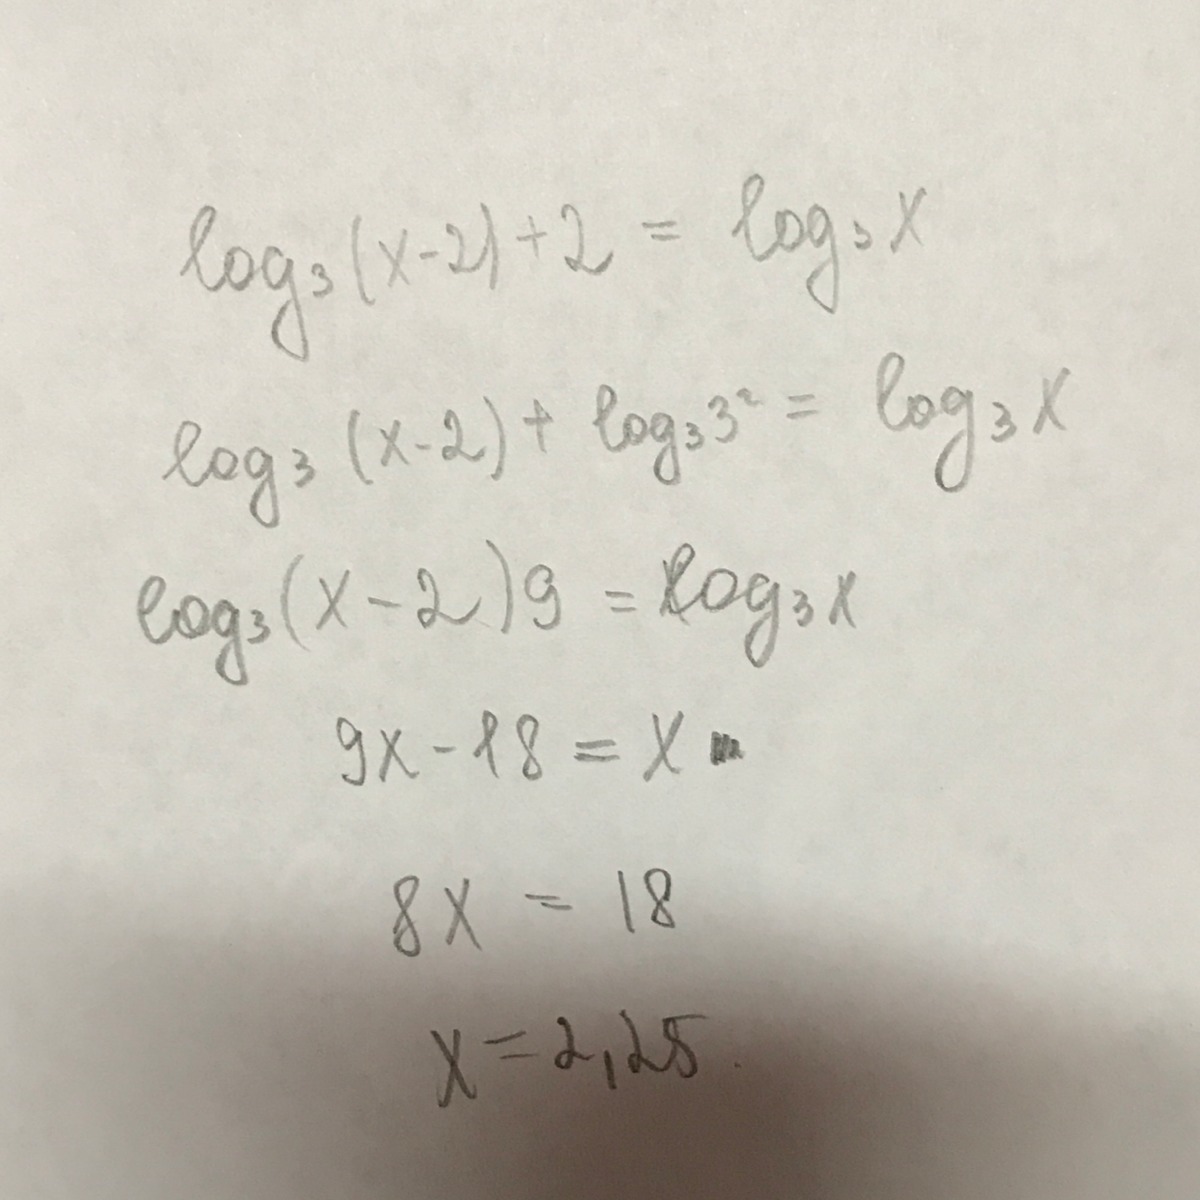 log₃(x-2)+2 = log₃x
log₃(x-2)+ log₃3² = log₃x
log₃(x-2)9 = log₃x
9x-18 = x
8x = 18
x=2,25